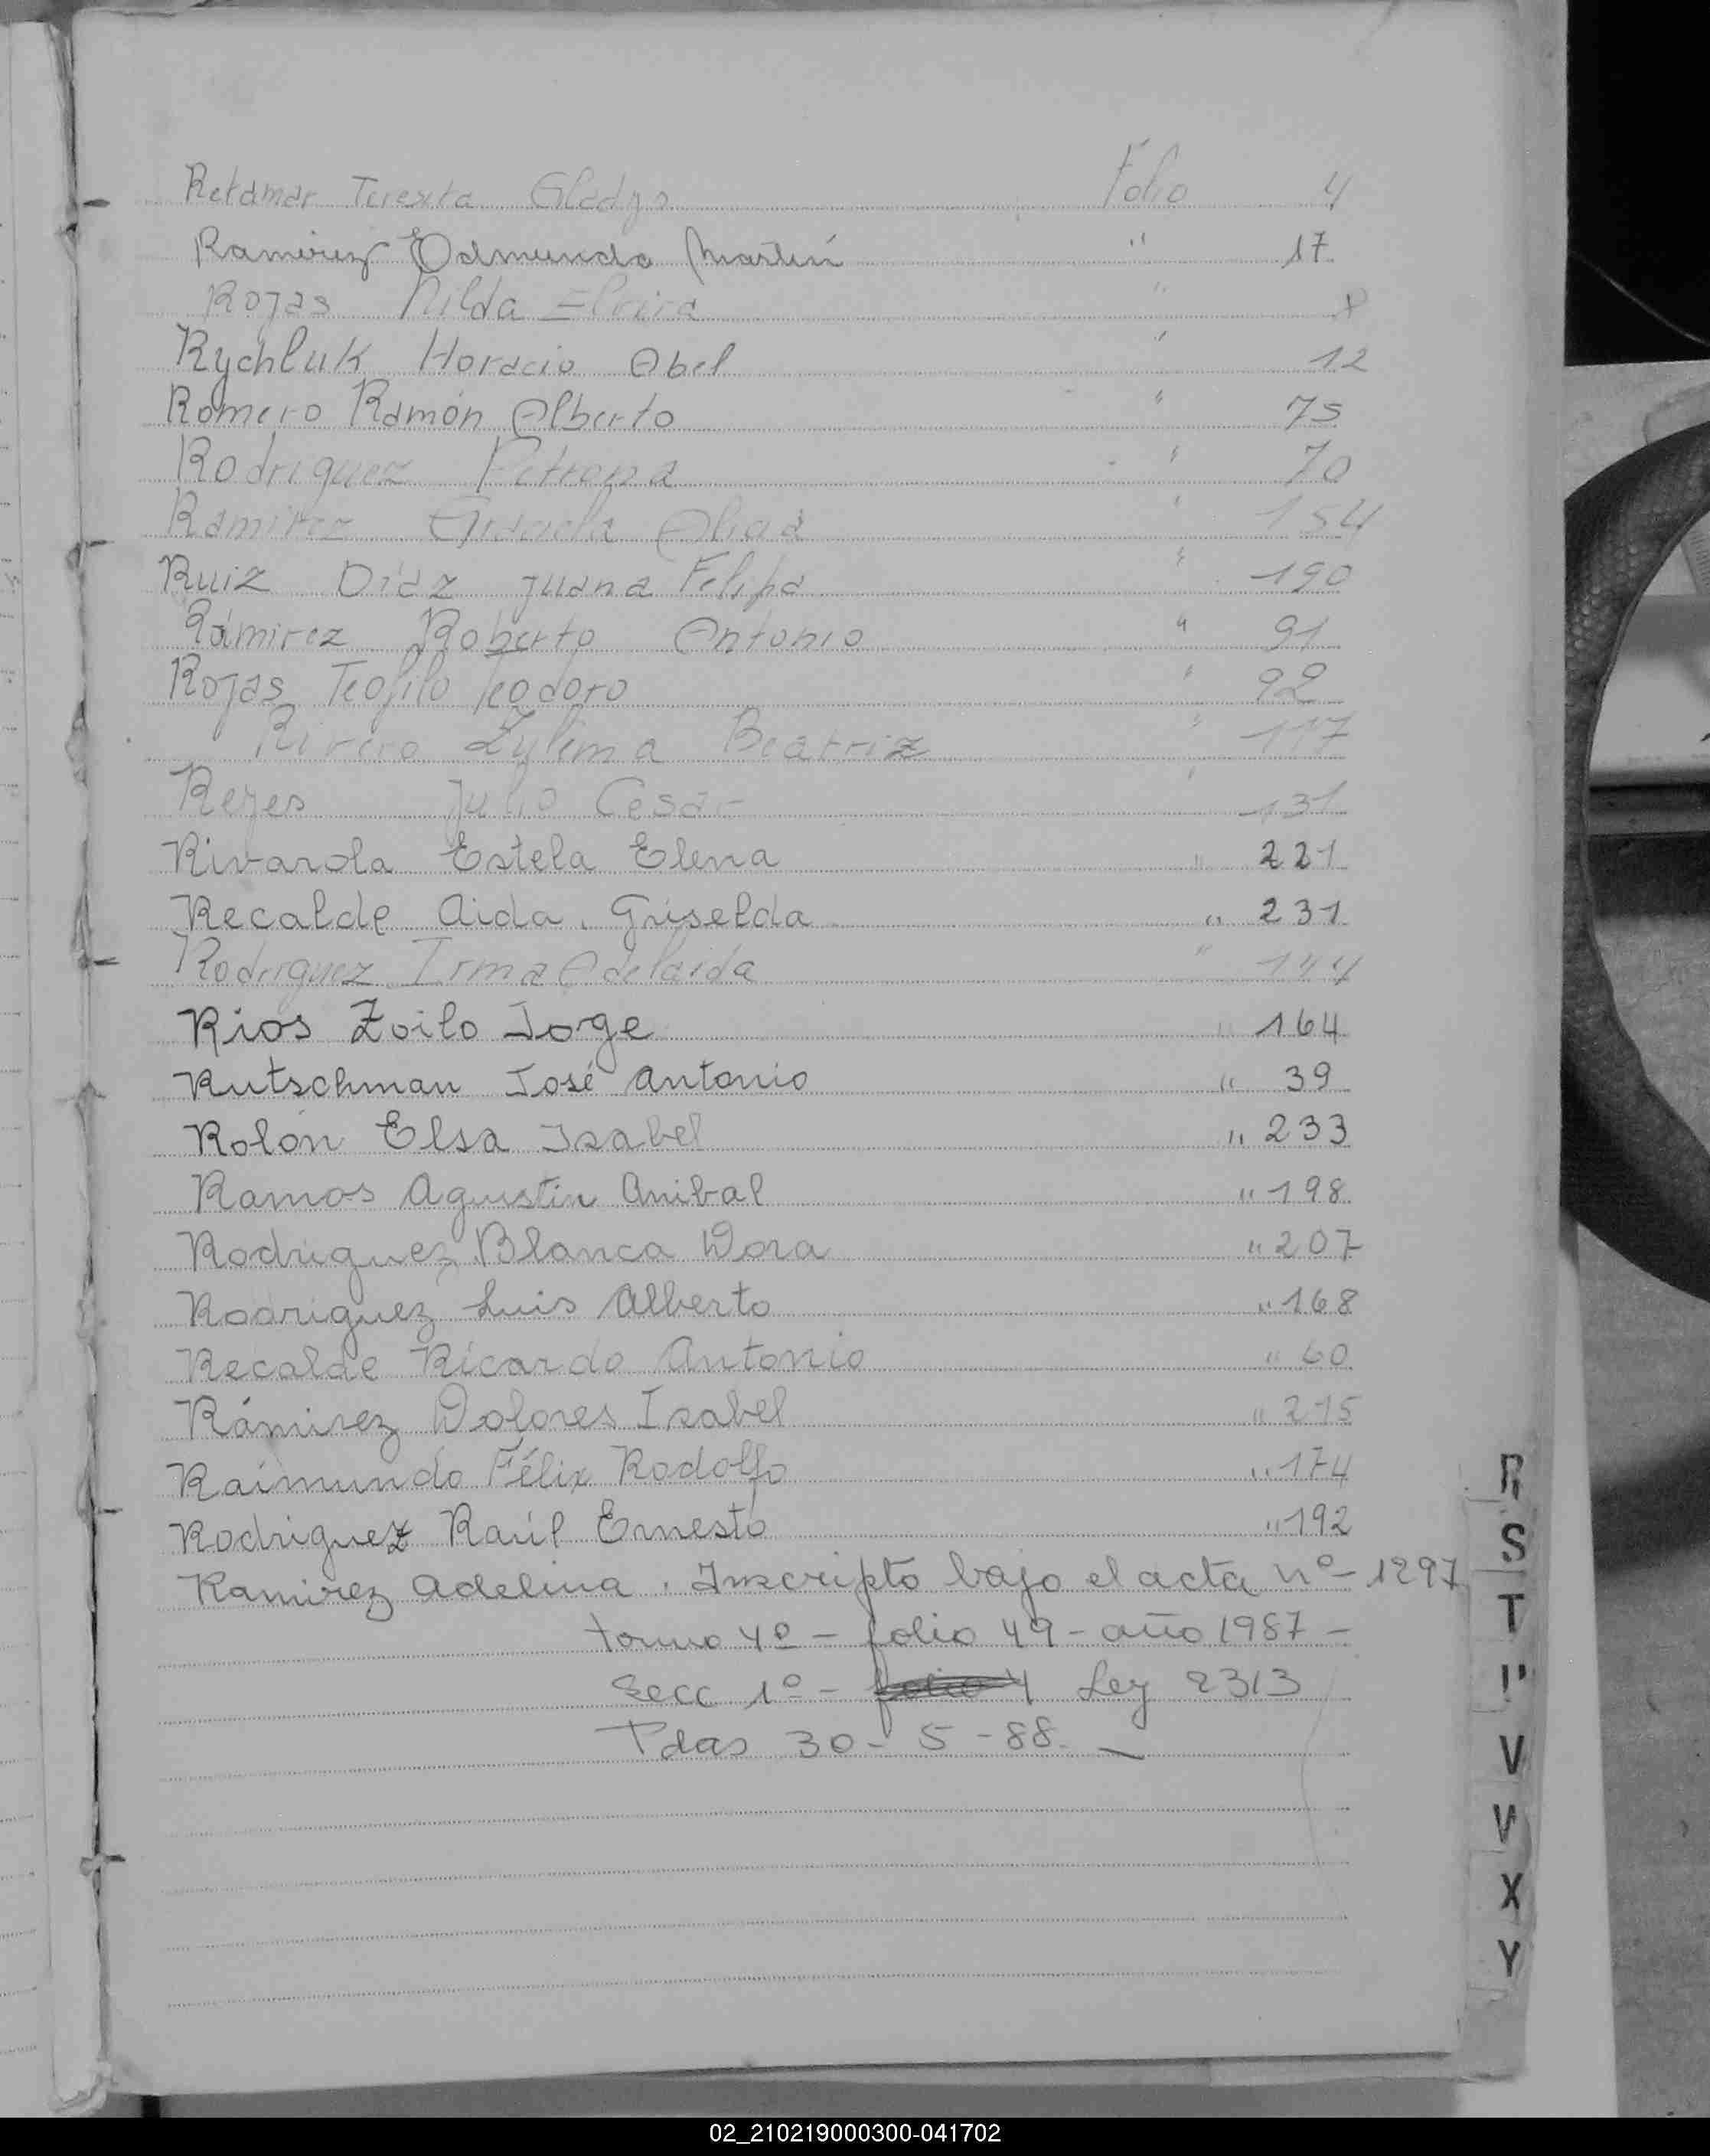 Retamar Teresita Gladys Folio 4
Ramirez Edmundo Martin " 17
Rojas Nilda Elvira " 8
Rychluk Horacio Abel " 12
Romero Ramón Alberto " 75
Rodriguez Petrona " 70
Ramirez Graciela " 154
Ruiz Diaz Juana Felipa " 190
Ramirez Roberto Antonio " 91
Rojas Teofilo Teodoro " 92
Rivero Zylema Beatriz " 117
Reyes Julio Cesar " 131
Rivarola Estela Elena " 221
Recalde Aida Griselda " 231
Rodriguez Irma Adelaida " 144
Rios Zoilo Jorge " 164
Rutschman José Antonio " 39
Rolón Elsa Isabel " 233
Ramos Agustin Anibal " 198
Rodriguez Blanca Dora " 207
Rodriguez Luis Alberto " 168
Recalde Ricardo Antonio " 60
Rámirez Dolores Isabel " 215
Raimundo Félix Rodolfo " 174
Rodriguez Raúl Ernesto " 192
Ramirez Adelina . Inscripto bajo el acta nº- 1297
tomo 4º - folio 49 - año 1987 -
Secc 1º - Ley 2313
Pdas 30 - 5 - 88. -
R
S
T
V
W
X
Y
02_210219000300-041702